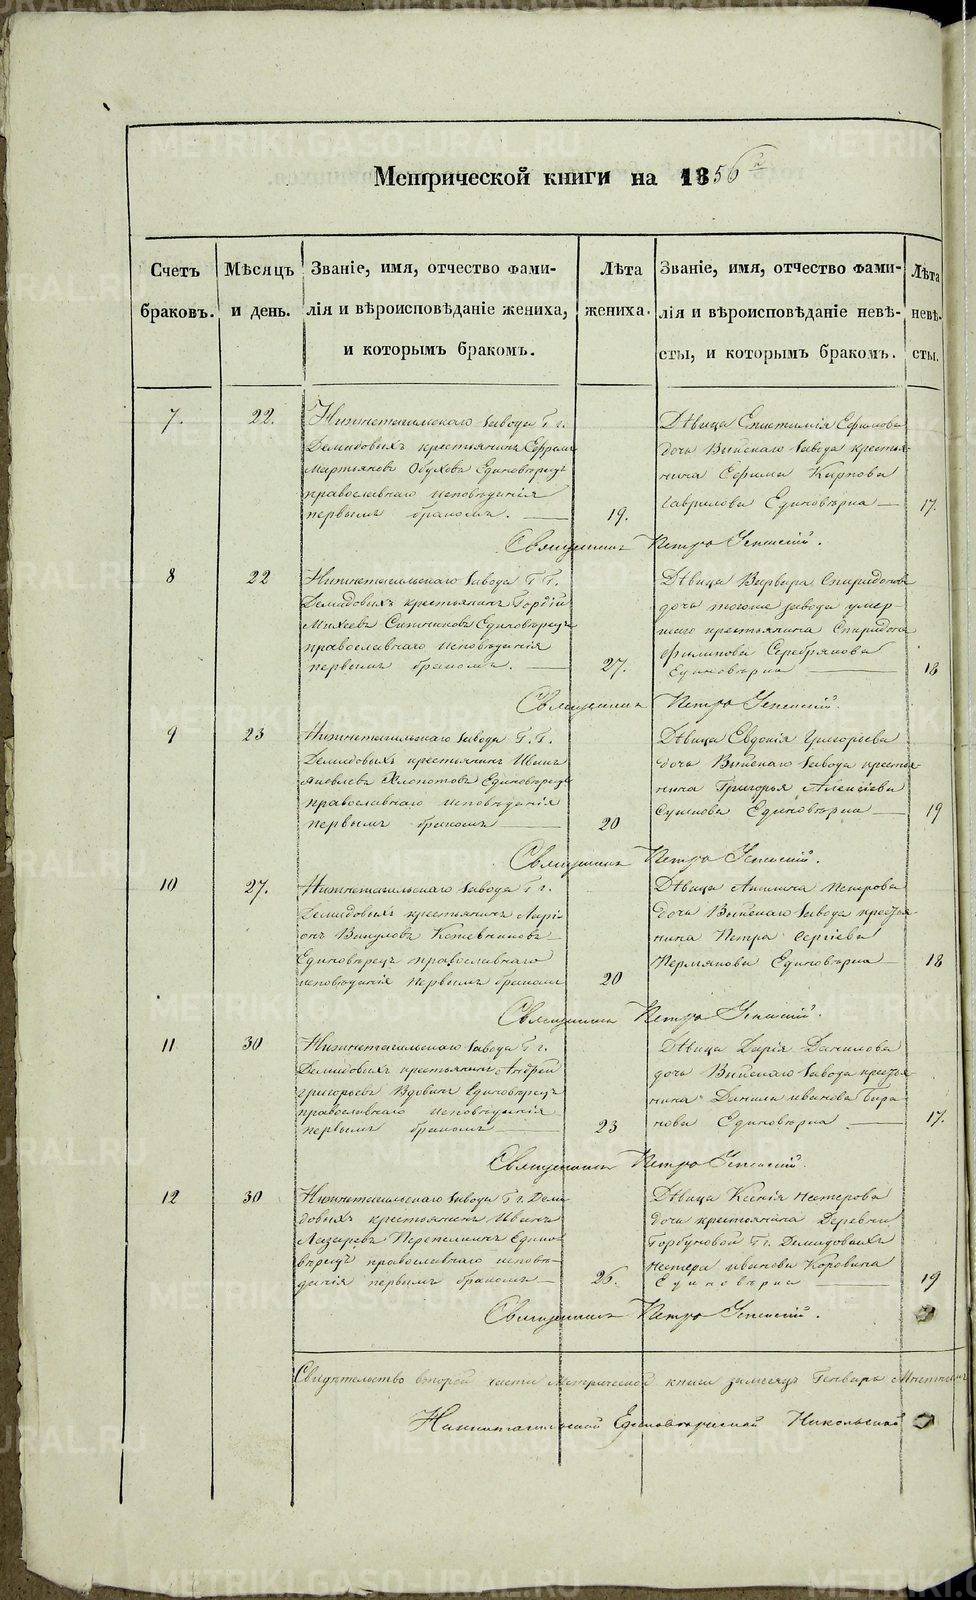 METRIKI.GASO-URAL.RU
Метрической книги на 1856й
Счетъ браковъ.
Мѣсяцъ и день.
Званіе, имя, отчество фами-
лія и вѣроисповѣданіе жениха,
и которымъ бракомъ.
Лѣта жениха.
Званіе, имя, отчество фами-
лія и вѣроисповѣданіе невѣ-
сты, и которымъ бракомъ.
Лѣта невѣ- сты.
7.
22.
Нижнетагильскаго завода Г. г.
Демидовыхъ крестьянинъ
Мартьяновъ Обуховъ Единовѣрецъ
православнаго исповѣданія
первымъ бракомъ.
19.
Дѣвица Епистимія Ефимова
дочь Выйскаго завода крестья-
нина Ефима Карпова
Гаврилова Единовѣрка
17.
Священникъ Петръ
8
22
Нижнетагильскаго завода Г. Г.
Демидовыхъ крестьянинъ Гордій
Михеевъ Единовѣрецъ
православнаго исповѣданія
первымъ бракомъ.
27.
Дѣвица Варвара Спиридонова
дочь тогоже завода умер-
шаго крестьянина Спиридона
Филипова Серебрякова
Единовѣрка
18
Священникъ Петръ
9
23
Нижнетагильскаго завода Г. Г.
Демидовыхъ крестьянинъ Иванъ
Яковлевъ Хлопотовъ Единовѣрецъ
православнаго исповѣданія
первымъ бракомъ
20
Дѣвица Евдокія Григорьева
дочь Выйскаго завода крестья-
нина Григорья Алексіева
Единовѣрка
19
Священникъ Петръ
10
27.
Нижнетагильскаго завода Г. г.
Демидовыхъ крестьянинъ Ларі-
онъ Викуловъ Кожевниковъ
Единовѣрецъ православнаго
исповѣданія первымъ бракомъ
20
Дѣвица Акилина Петрова
дочь Выйскаго завода крестья-
нина Петра Сергіева
Пермякова Единовѣрка
18
Священникъ Петръ
11
30
Нижнетагильскаго завода Г. г.
Демидовыхъ крестьянинъ Андрей
Григорьевъ Вдовинъ Единовѣрецъ
православнаго исповѣданія
первымъ бракомъ
23
Дѣвица Дарія Данилова
дочь Выйскаго завода крестья-
нина Данила Иванова Бара
нова Единовѣрка
17.
Священникъ Петръ
12
30
Нижнетагильскаго завода Г. г. Деми
довыхъ крестьянинъ Иванъ
Лазаревъ Перетягинъ Едино
вѣрецъ православнаго исповѣ-
данія первымъ бракомъ
26.
Дѣвица Ксенія Нестерова
дочь крестьянина Деревни
Горбуновой Г. г. Демидовыхъ
Нестера Иванова Коровина
Единовѣрка
19
Священникъ Петръ
Свидѣтельство второй части Метрической книги за месяцъ Генварь
Нижнетагильской Единовѣрческой Никольской